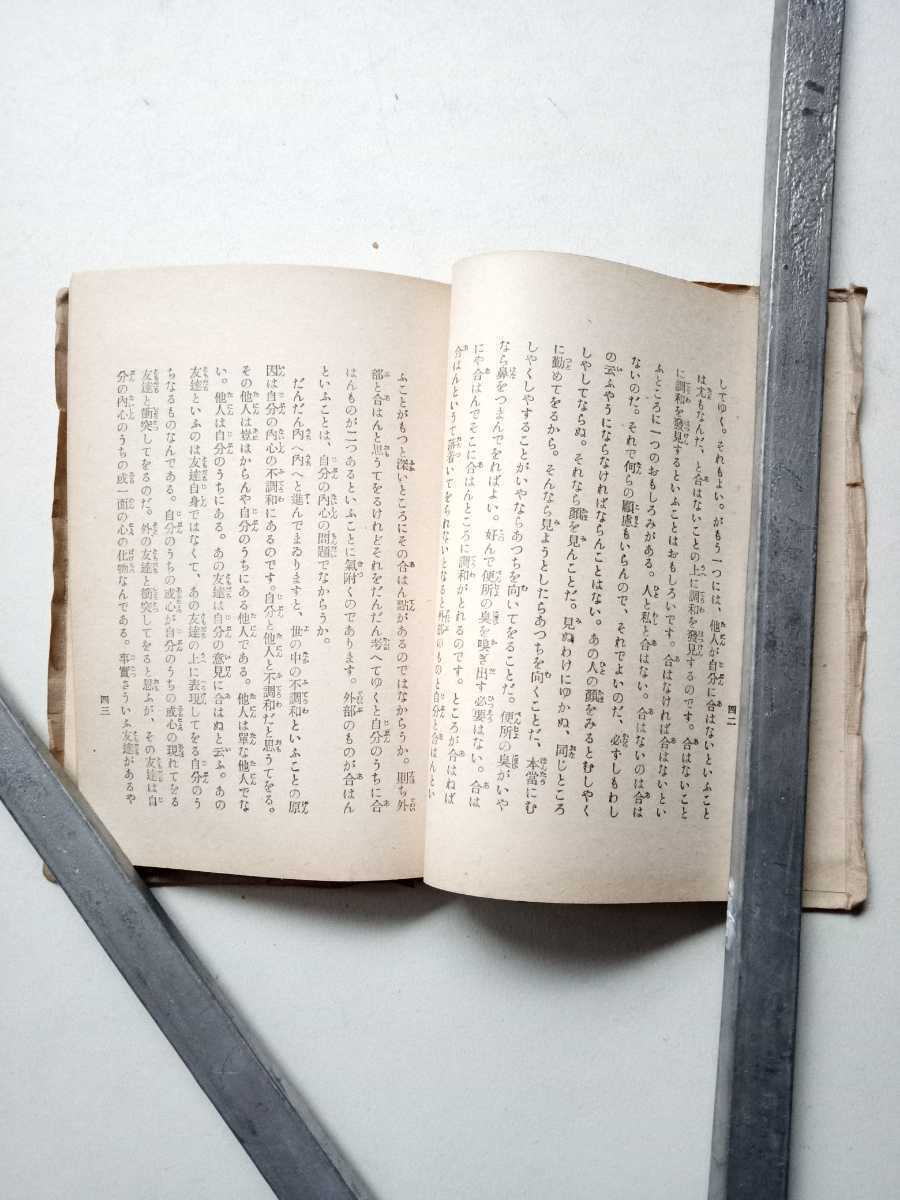 四二
してゆく。それもよい。がもう一つには、他人が自分に合はないといふこと
は尤もなんだ、と合はないことの上に調和を發見するのです。合はないこと
に調和を發見するといふことはおもしろいです。合はなければ合はないとい
ふところに一つのおもしろみがある。人と私と合はない。合はないのは合は
ないのだ。それで何らの顧慮もいらんので、それでよいのだ、必ずしもわし
の云ふやうにならなければならんことはない。あの人の顏をみるとむしやく
しやしてならぬ。それなら顏を見んことだ。見ぬわけにゆかぬ、同じところ
に勤めてをるから。そんなら見ようとしたらあつちを向くことだ、本當にむ
しやくしやすることがいやならあつちを向いてをることだ。便所の臭がいや
なら鼻をつまんでをればよい。好んで便所の臭を嗅ぎ出す必要はない。合は
にや合はんでそこに合はんところに調和がとれるのです。ところが合はねば
合はんというて落着いてをられないとなると外部のものと自分と合はんとい
ふことがもつと深いところにその合はん點があるのではなからうか。則ち外
部と合はんと思うてをるけれどそれをだんだん考へてゆくと自分のうちに合
はんものが二つあるといふことに氣附くのであります。外部のものが合はん
といふことは、自分の內心の問題でなからうか。
だんだん內へ內へと進んでまゐりますと、世の中の不調和といふことの原
因は自分の內心の不調和にあるのです自分と他人と不調和だと思うてをる。
その他人は豈はからんや自分のうちにある他人である。他人は單な他人でな
い。他人は自分のうちにある。あの友達は自分の意見に合はぬと云ふ。あの
友達といふのは友達自身ではなくて、あの友達の上に表現してをる自分のう
ちなるものなんである。自分のうちの或心が自分のうちの或心の現れてをる
友達と衝突してをるのだ。外の友達と衝突してをると思ふが、その友達は自
分の內心のうちの或一面の心の化物なんである。事實さういふ友達があるや
四三